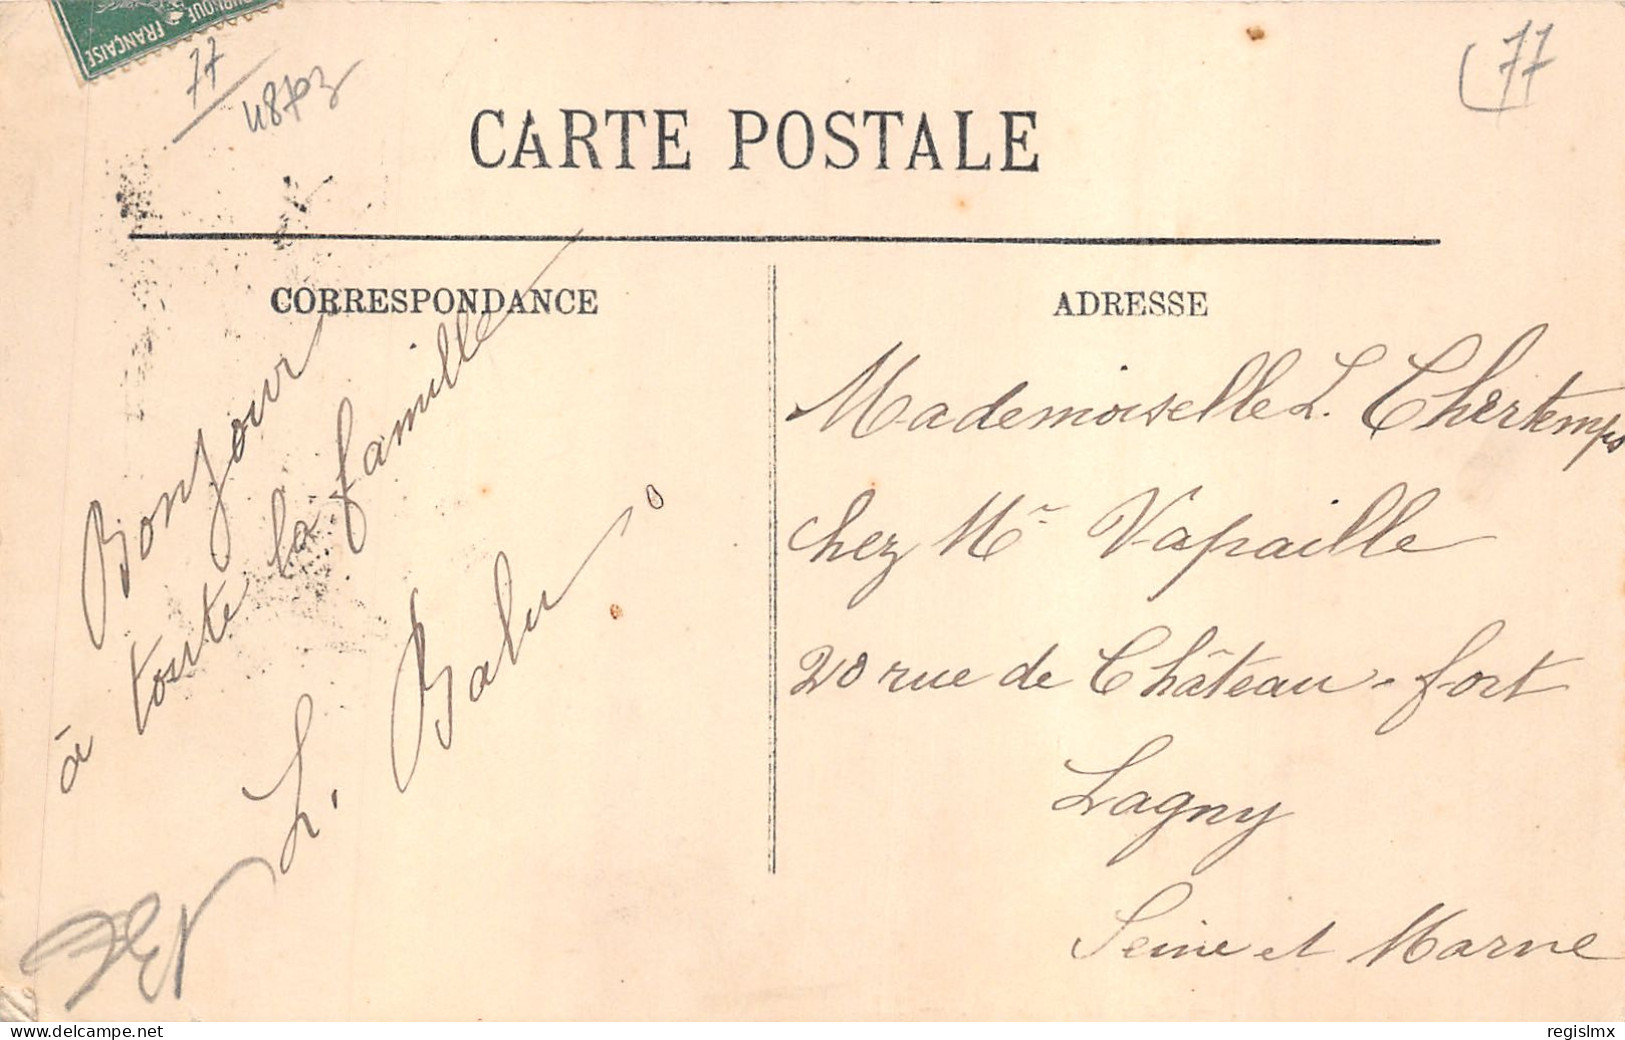 FRANÇAISE
77
48703
77
CARTE POSTALE
CORRESPONDANCE
Bonjour
à toute la famille
L. Bahu
ADRESSE
Mademoiselle L. Chertemps
chez Mr Vapaille
20 rue de Château-fort
Lagny
Seine et Marne
www.delcampe.net
regislmx